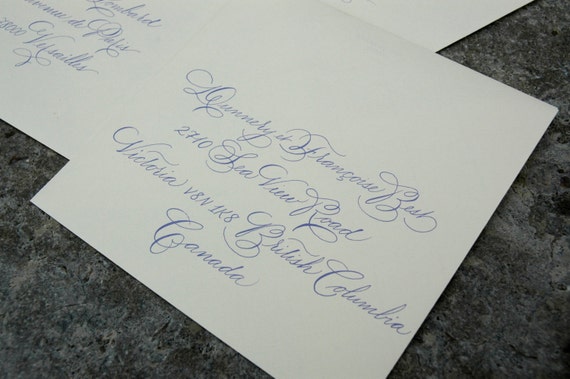 Avenue de Paris
Versailles
Françoise Best
2710 Sea View Road
Victoria V8N 1K8 British Columbia
Canada